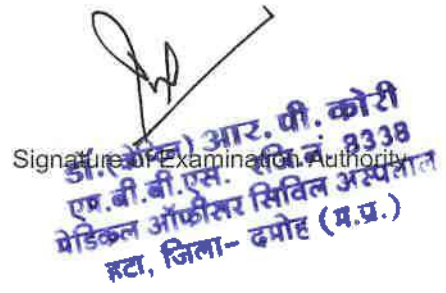 Signature of Examination Authority
डॉ. आर. पी. कोरी
एम.बी.बी.एस. रजि.नं. 8338
मेडिकल ऑफीसर सिविल अस्पताल
हटा, जिला- दमोह (म.प्र.)